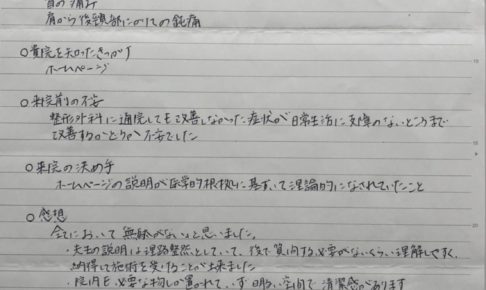 首の痛み
肩から後頭部にかけての鈍痛
○貴院を知ったきっかけ
ホームページ
○来院前の不安
整形外科に通院しても改善しなかった症状が日常生活に支障のないところまで
改善するかどうか不安でした
○来院の決め手
ホームページの説明が医学的根拠に基ずいて理論的になされていたこと
○感想
全てにおいて無駄がないと思いました。
・先生の説明は理路整然としていて、後で質問する必要がないくらい理解しやすく、
納得して施術を受けることが出来ました
・院内も必要な物しか置かれていず明るい空間で清潔感があります